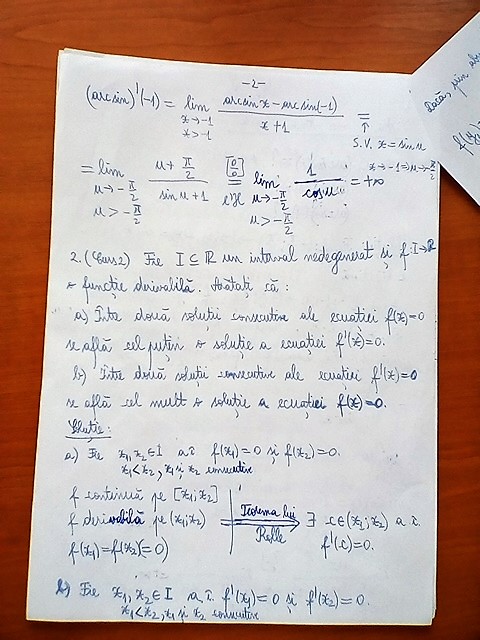 -2-
(arcsin)'(-1) = lim x→-1 x>-1 (arcsin x - arcsin(-1)) / (x+1) =
S.V. x = sin u
x→-1 ⇒ u→-π/2
= lim u→-π/2 u>-π/2 (u + π/2) / (sin u + 1) =[0/0] l'H lim u→-π/2 u>-π/2 1 / cos u = +∞
2. (Curs 2) Fie I ⊆ ℝ un interval nedegenerat și f: I→ℝ
o funcție derivabilă. Arătați că :
a) Între două soluții consecutive ale ecuației f(x)=0
se află cel puțin o soluție a ecuației f'(x)=0.
b) Între două soluții consecutive ale ecuației f'(x)=0
se află cel mult o soluție a ecuației f(x)=0.
Soluție:
a) Fie x₁, x₂ ∈ I a.î. f(x₁)=0 și f(x₂)=0.
x₁<x₂, x₁ și x₂ consecutive
f continuă pe [x₁; x₂]
f derivabilă pe (x₁; x₂)
f(x₁)=f(x₂)(=0)
Teorema lui
Rolle
∃ c∈(x₁; x₂) a.î.
f'(c)=0.
b) Fie x₁, x₂ ∈ I a.î. f'(x₁)=0 și f'(x₂)=0.
x₁<x₂, x₁ și x₂ consecutive